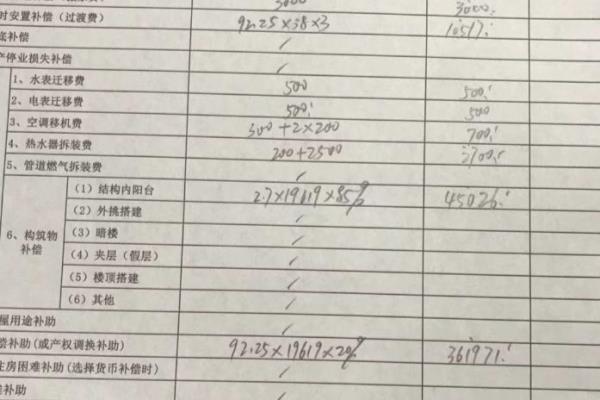 3000 3000.
时安置补偿（过渡费） 92.25×38×3 10517.
底补偿 /
产停业损失补偿 /
1、水表迁移费 500 500.
2、电表迁移费 500. 500
3、空调移机费 300+2×200 700.
4、热水器拆装费 200+2500 2700.
5、管道燃气拆装费 /
6、构筑物补偿
（1）结构内阳台 2.7×19619×85% 45026.
（2）外挑搭建 /
（3）暗楼 /
（4）夹层（假层） /
（5）楼顶搭建 /
（6）其他 /
屋用途补助 /
偿补助(或产权调换补助) 92.25×19619×20% 361971.
住房困难补助(选择货币补偿时) /
补助 /